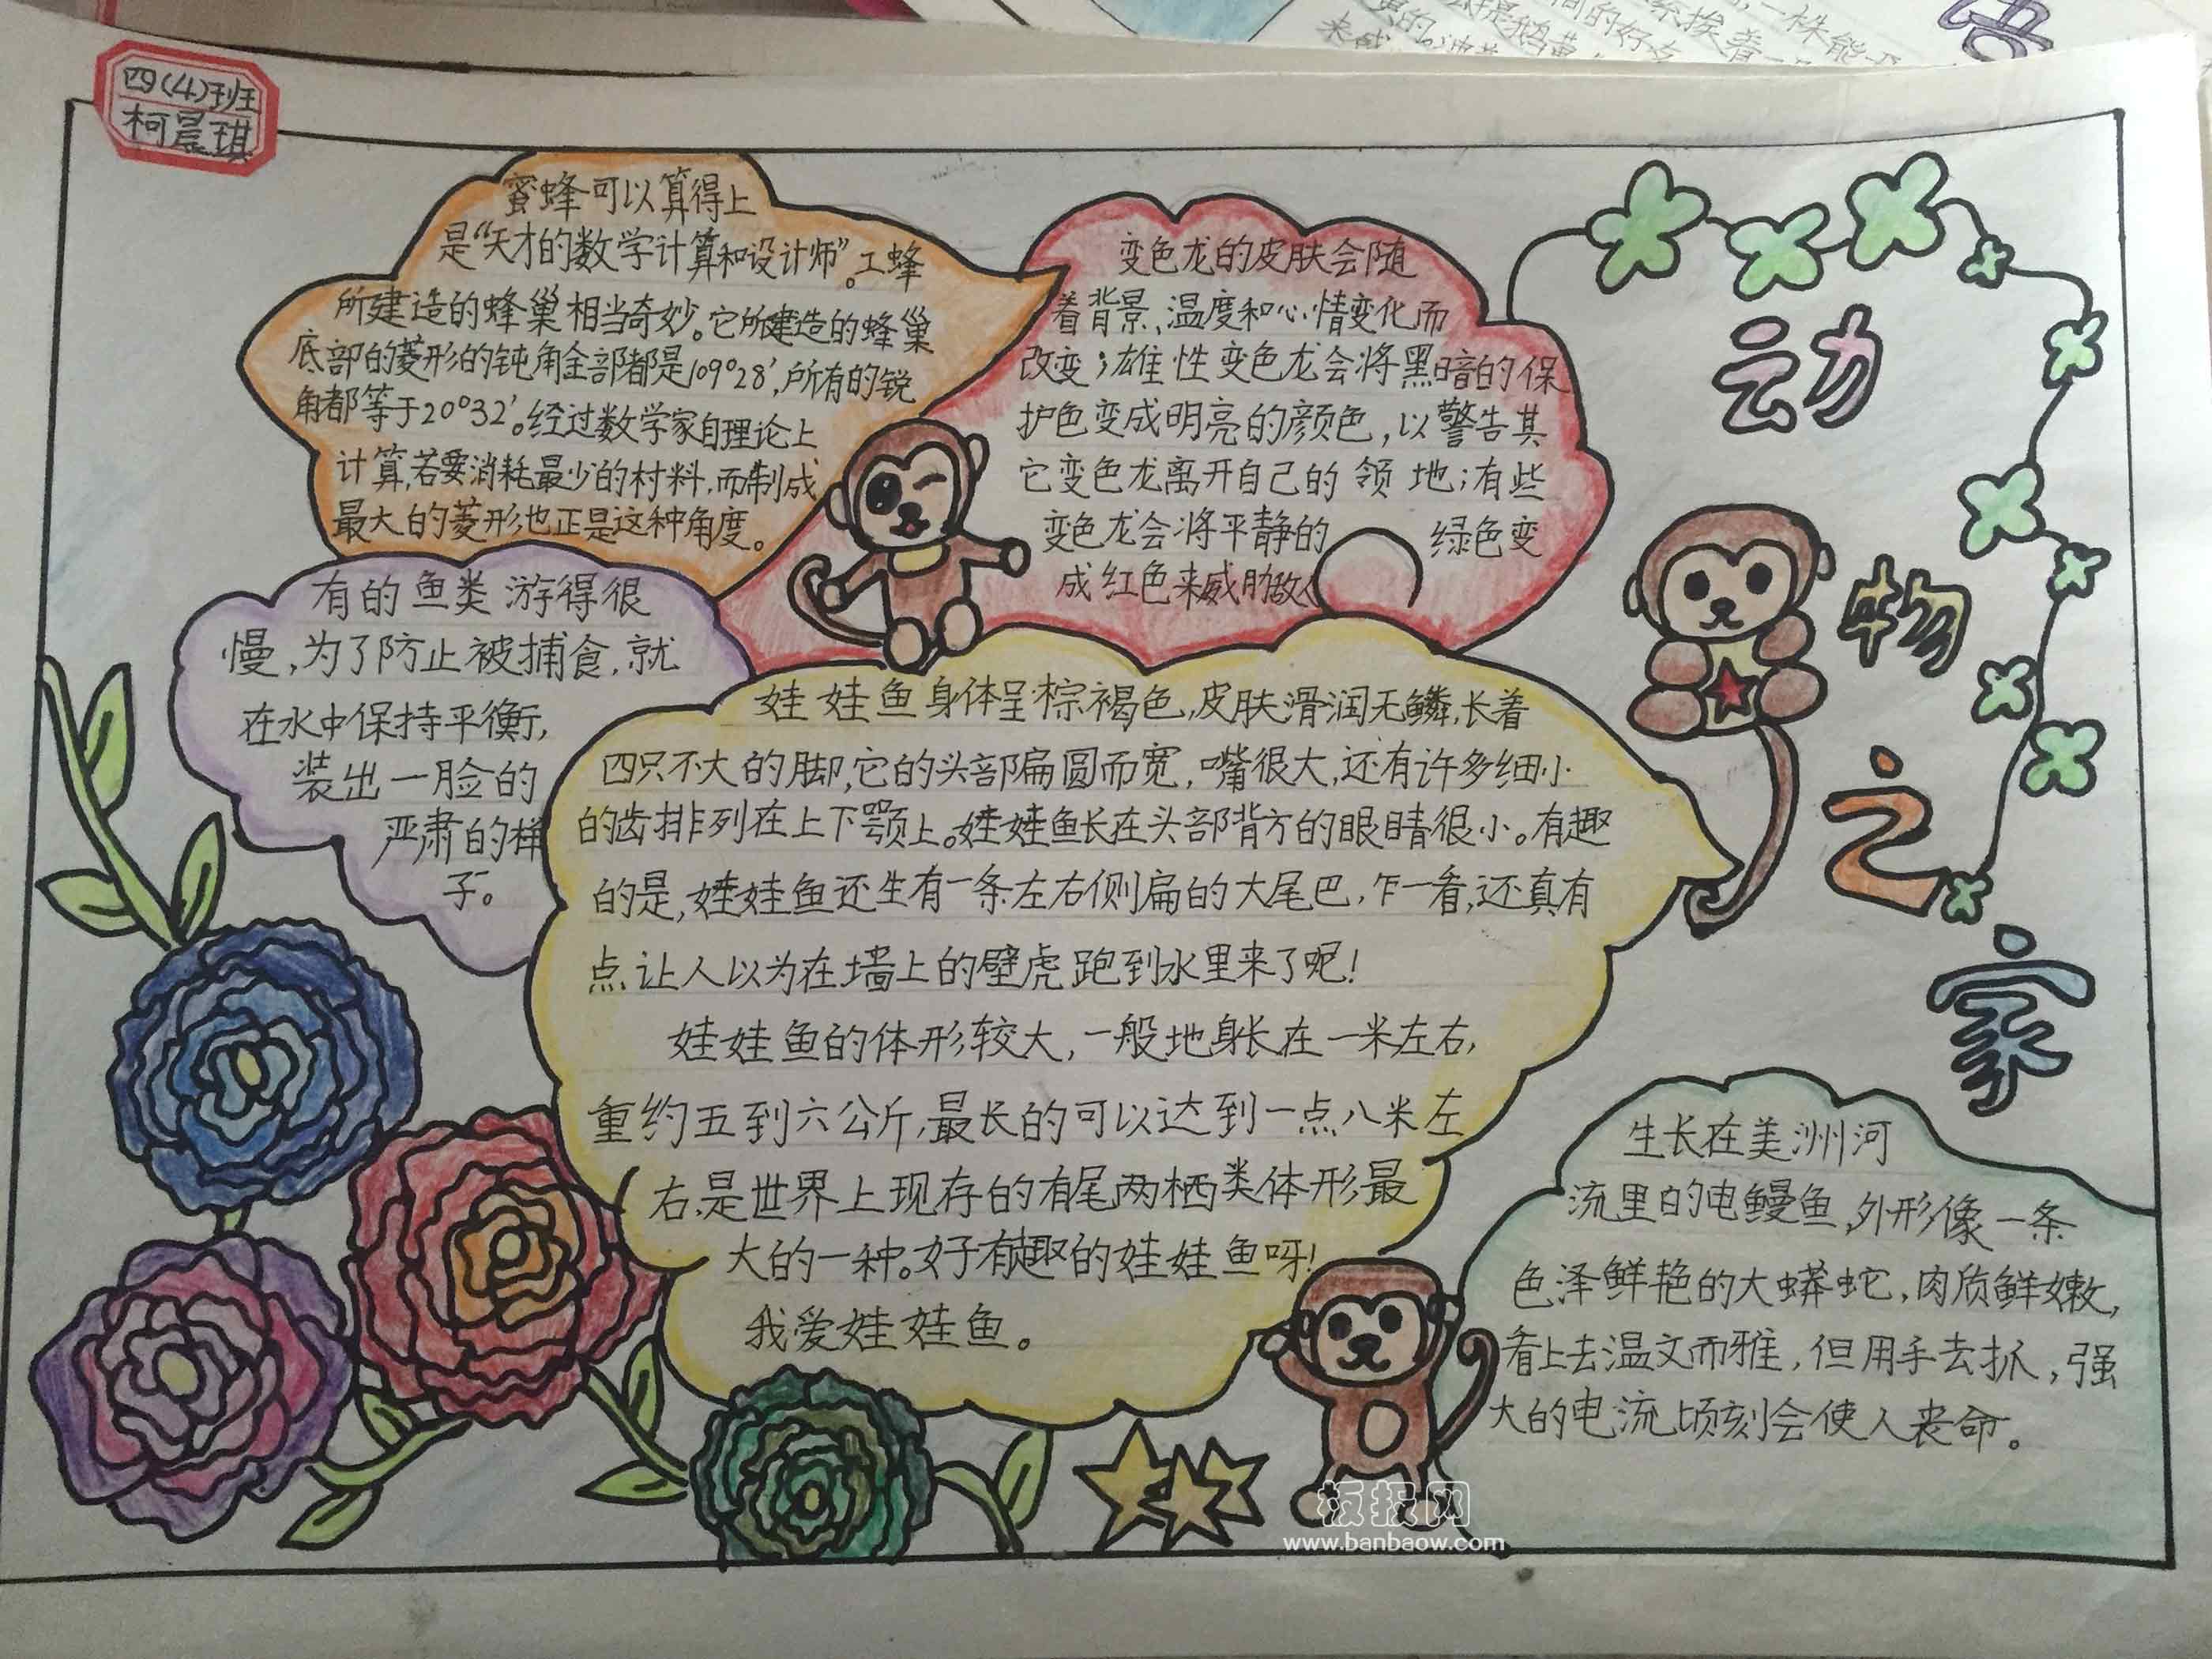 四(4)班
柯晨琪
动物之家
蜜蜂可以算得上
是“天才的数学计算和设计师”。工蜂
所建造的蜂巢相当奇妙。它所建造的蜂巢
底部的菱形的钝角全部都是109°28′,所有的锐
角都等于20°32′。经过数学家自理论上
计算,若要消耗最少的材料,而制成
最大的菱形也正是这种角度。
变色龙的皮肤会随
着背景、温度和心情变化而
改变;雄性变色龙会将黑暗的保
护色变成明亮的颜色,以警告其
它变色龙离开自己的领地;有些
变色龙会将平静的绿色变
成红色来威胁敌人
有的鱼类游得很
慢,为了防止被捕食,就
在水中保持平衡,
装出一脸的
严肃的样
子。
娃娃鱼身体呈棕褐色,皮肤滑润无鳞,长着
四只不大的脚,它的头部扁圆而宽,嘴很大,还有许多细小
的齿排列在上下颚上。娃娃鱼长在头部背方的眼睛很小。有趣
的是,娃娃鱼还生有一条左右侧扁的大尾巴,乍一看,还真有
点让人以为在墙上的壁虎跑到水里来了呢!
娃娃鱼的体形较大,一般地身长在一米左右,
重约五到六公斤,最长的可以达到一点八米左
右,是世界上现存的有尾两栖类体形最
大的一种。好有趣的娃娃鱼呀!
我爱娃娃鱼。
生长在美洲河
流里的电鳗鱼,外形像一条
色泽鲜艳的大蟒蛇,肉质鲜嫩,
看上去温文而雅,但用手去抓,强
大的电流顷刻会使人丧命。
板报网
www.banbaow.com